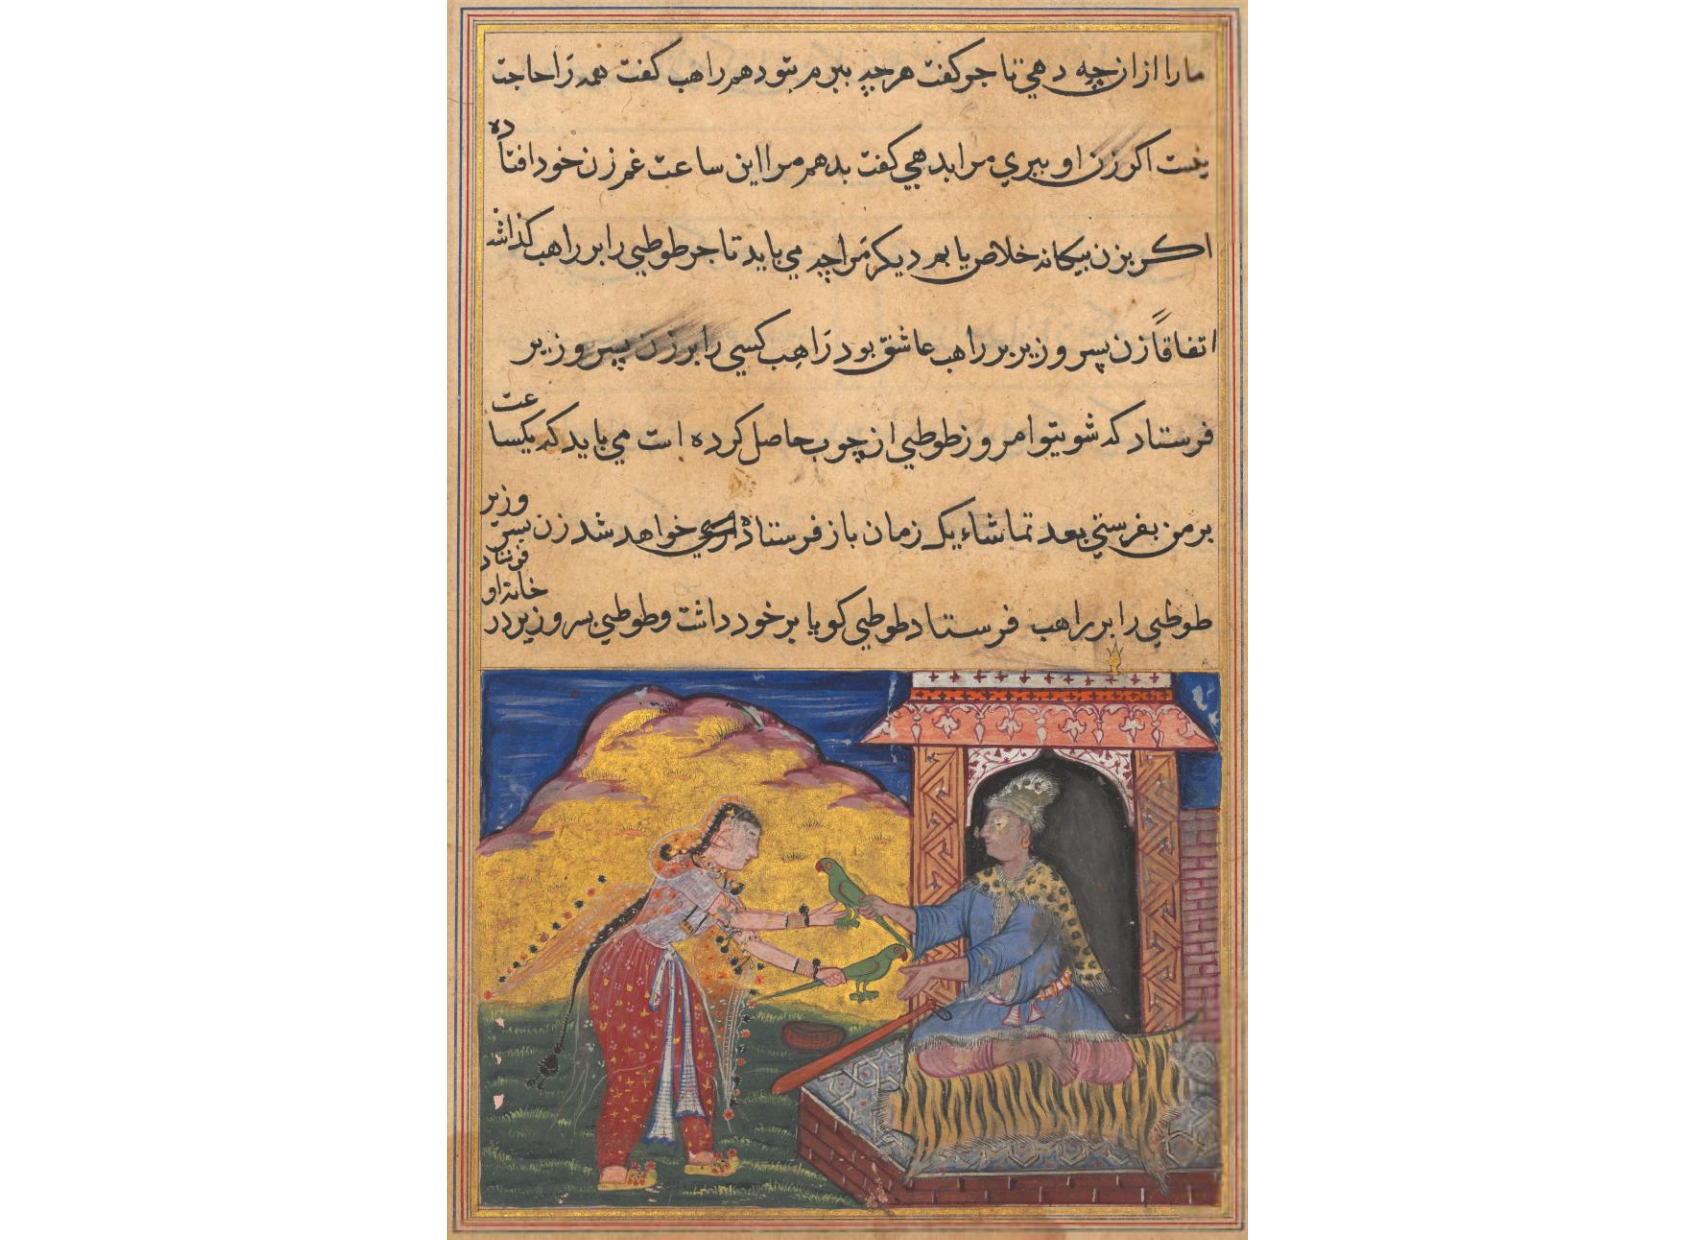 مارا ازان چه دهي تاجر كفت هرچه ببرم بتو دهم راهب كفت همه را حاجت
نيست اكر زن او ببري مرا بدهي كفت بدهم مرا اين ساعت غم زن خود افتاده
اكر بزن بيكانه خلاص يابم ديكر مرا چه مي بايد تاجر طوطي را بر راهب كذاشت
اتفاقاً زن پسر وزير بر راهب عاشق بود راهب كسي را بر زن پسر وزير
فرستاد كه شوي تو امروز طوطي از چوب حاصل كرده است مي بايد كه يكساعت
بر من بفرستي بعد تماشاء يك زمان باز فرستاده خواهد شد زن پسر وزير
طوطي را بر راهب فرستاد طوطي كويا بر خود داشت و طوطي پسر وزير در خانه او فرستاد